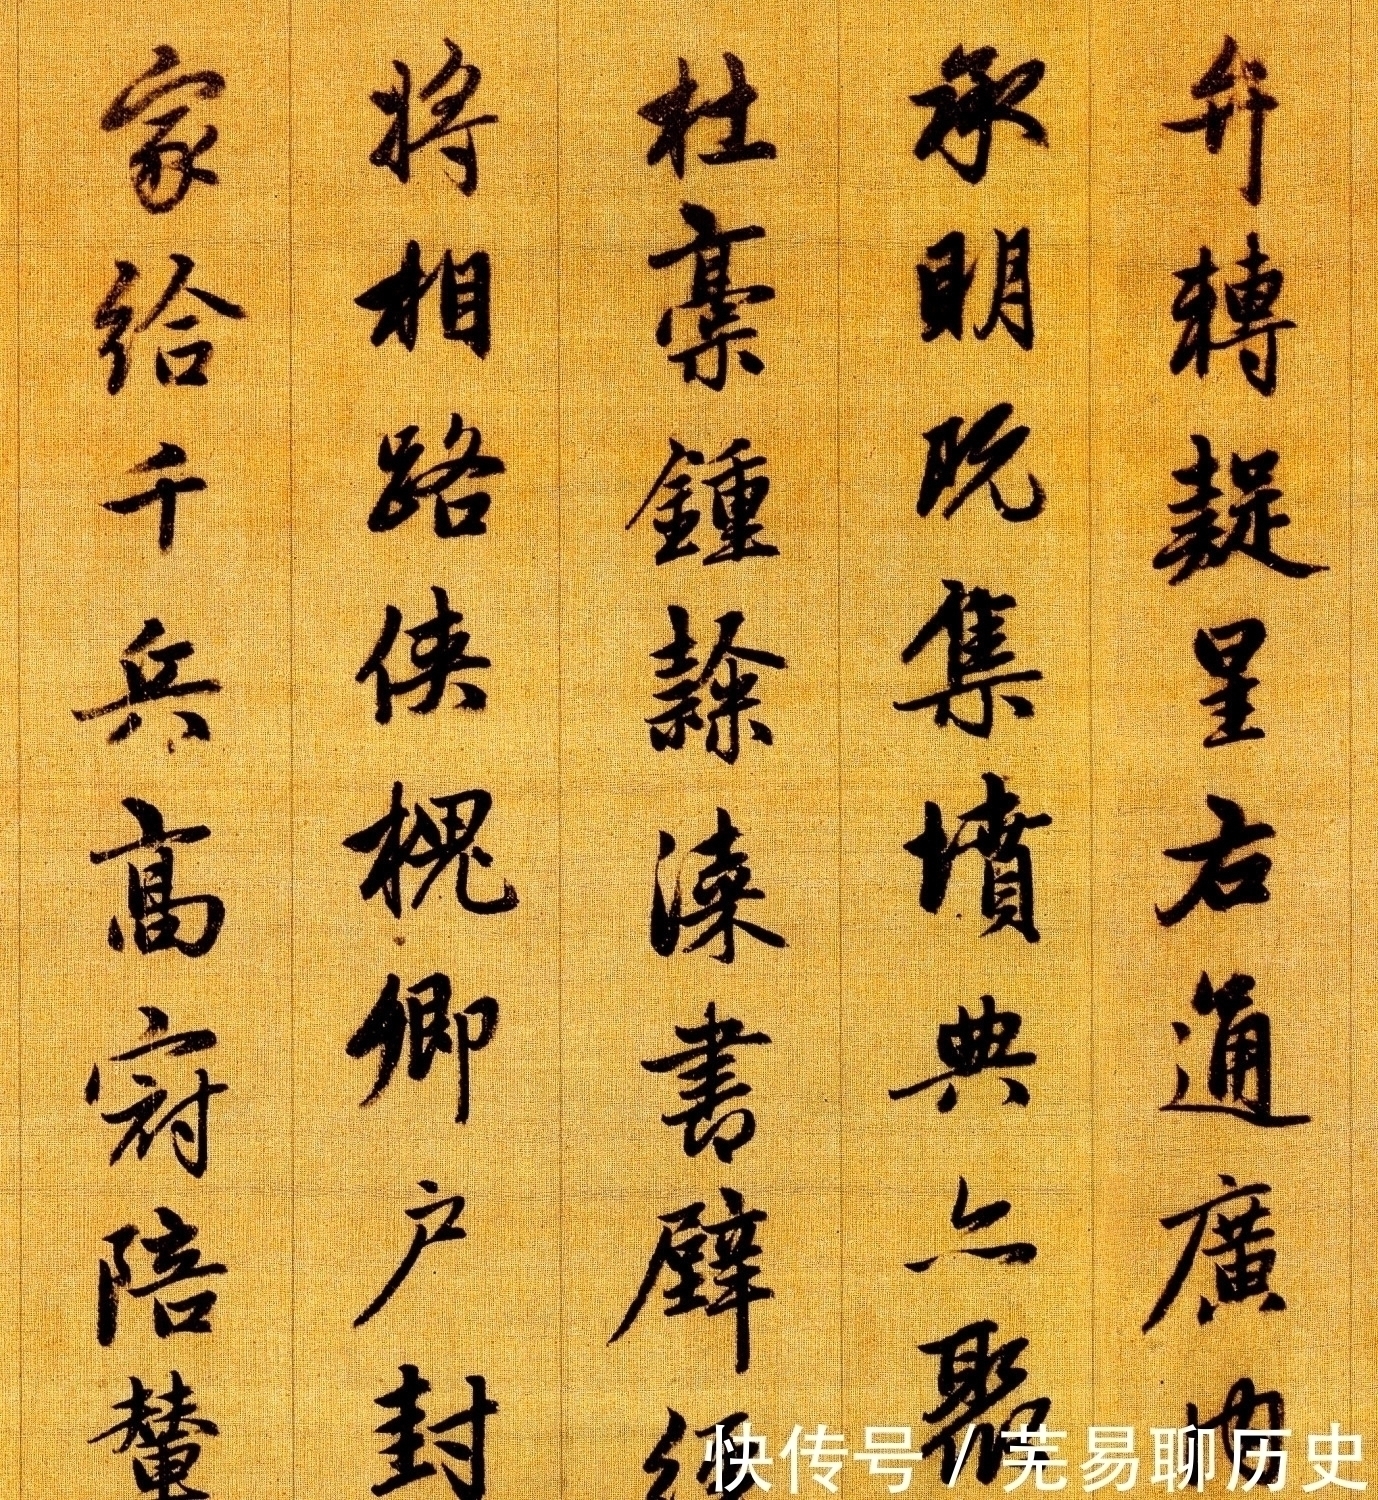 弁轉疑星右通廣内
承明既集墳典亦聚
杜稾鍾隸漆書壁經
將相路侠槐卿户封
家給千兵高冠陪輦
快传号 / 芜易聊历史